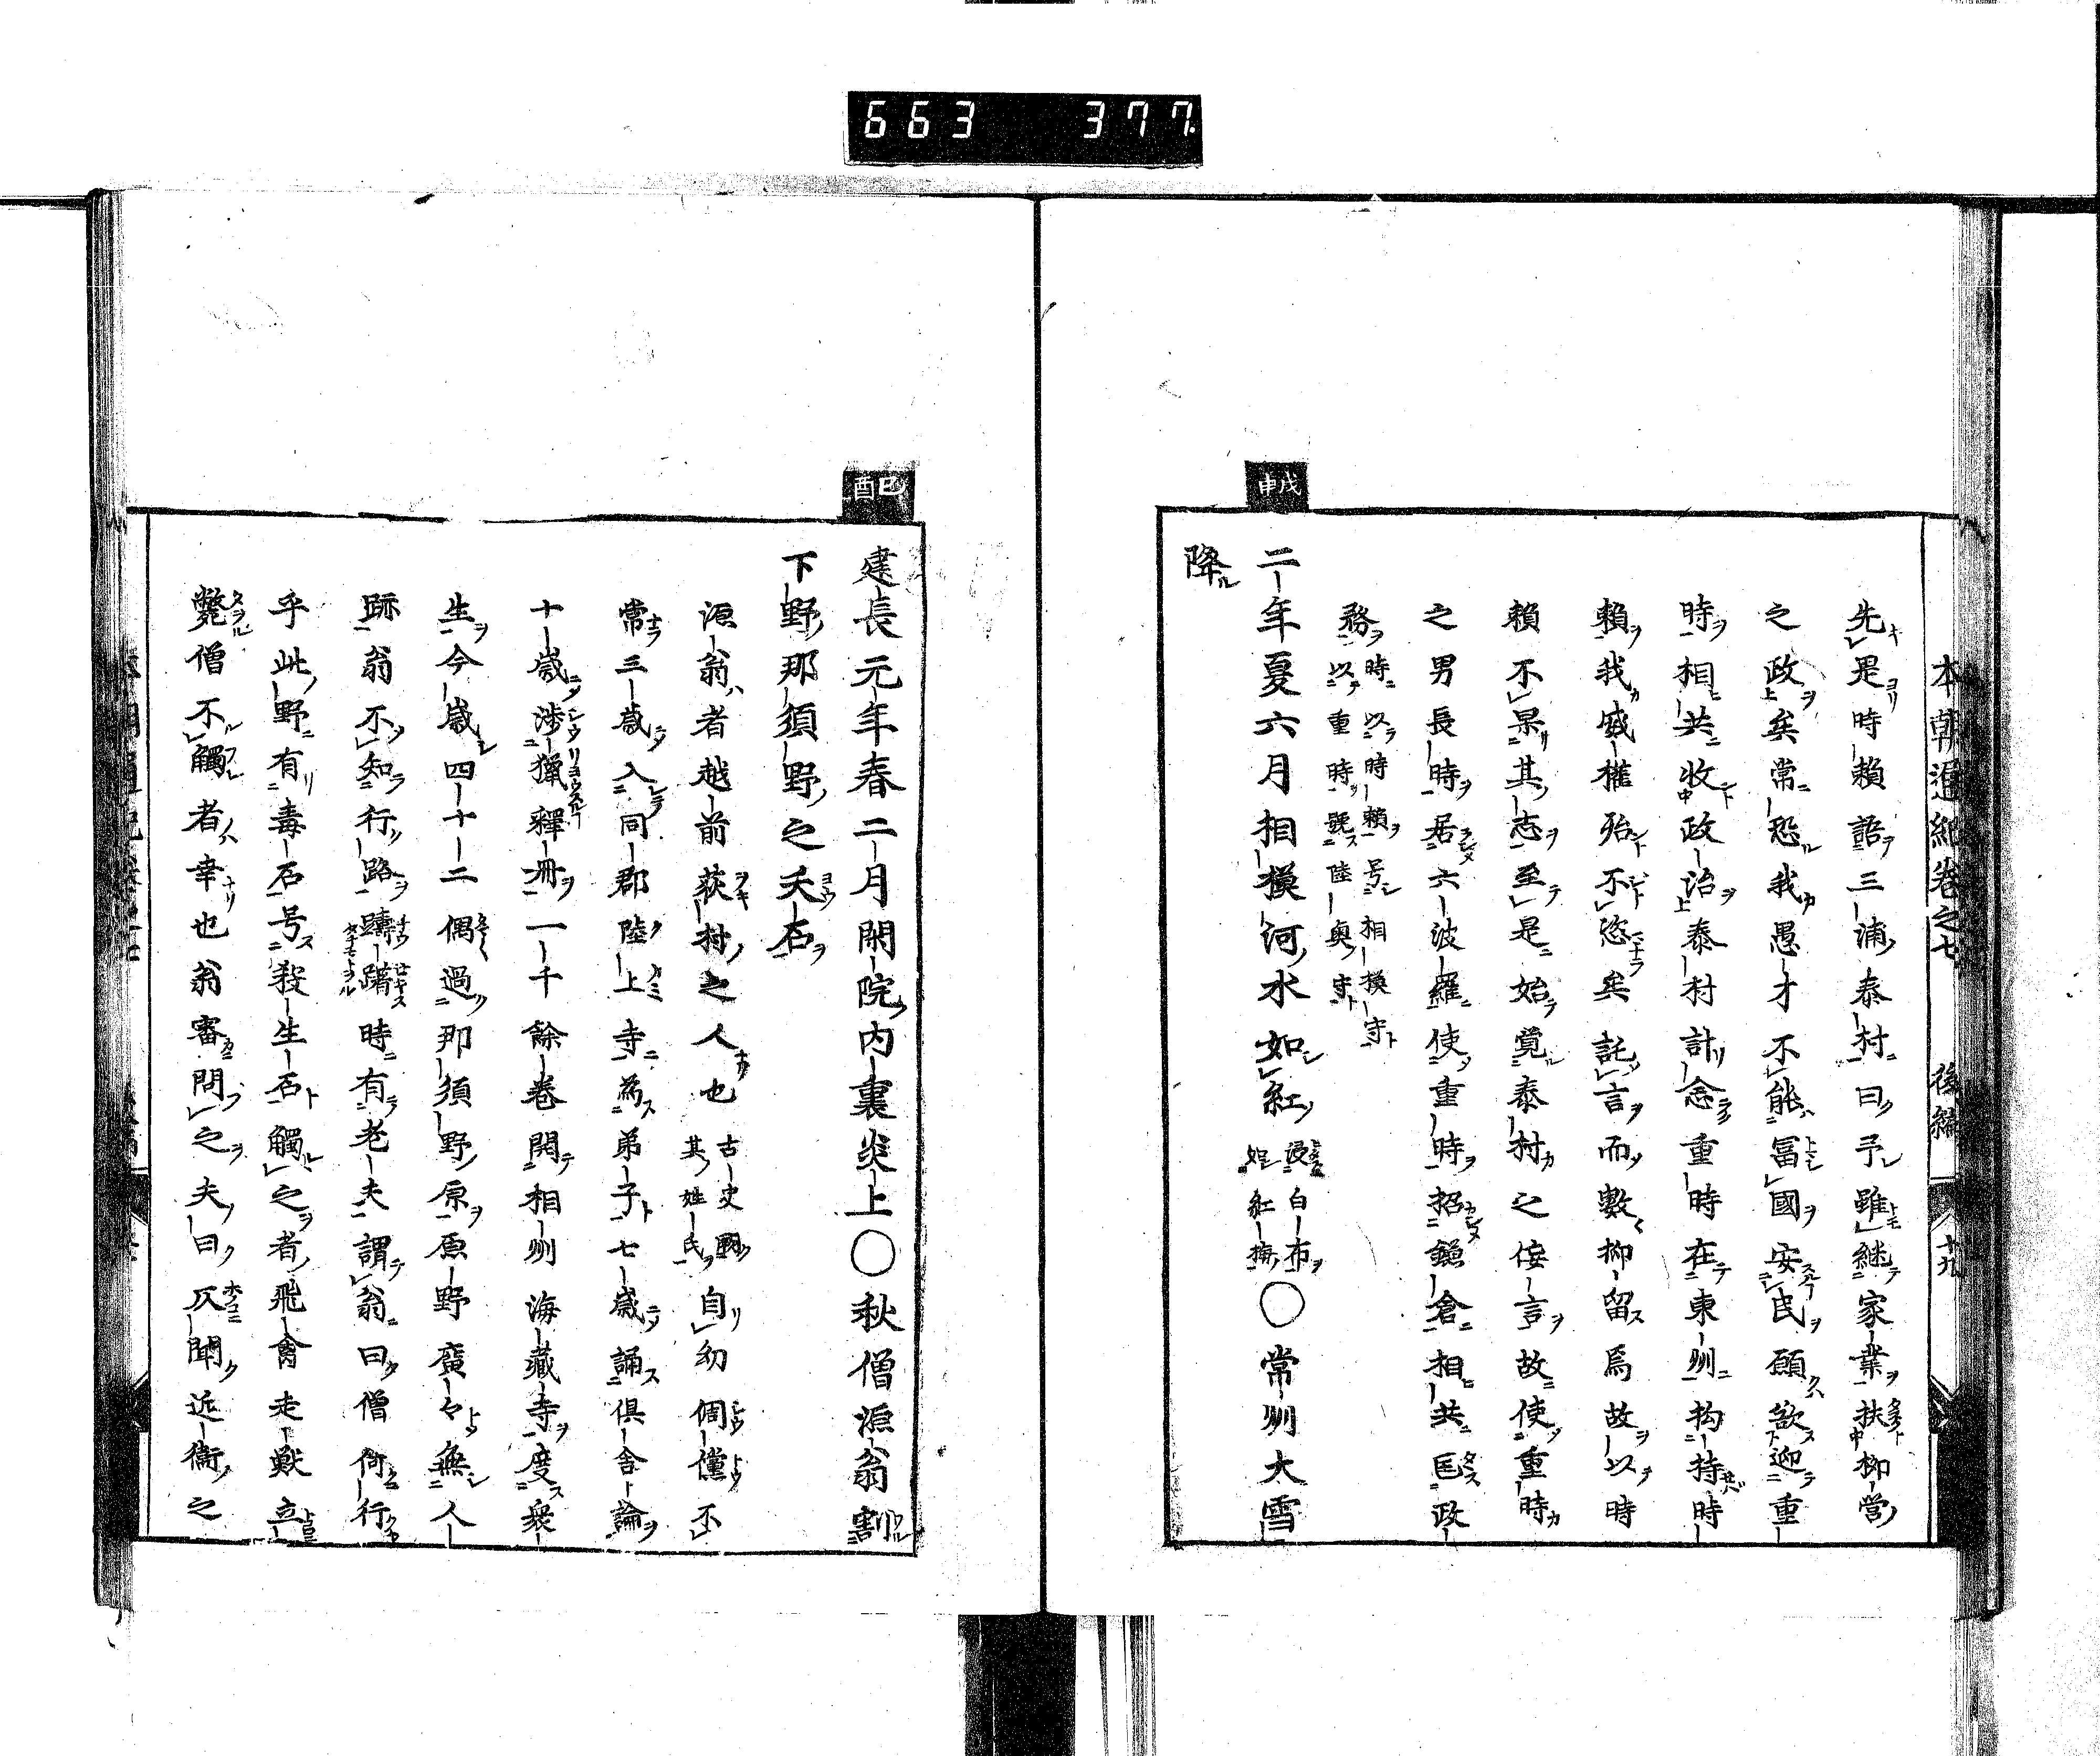 663 377
本朝通紀卷之七 後編 十九
先是時賴語三浦泰村曰予雖継家業扶柳營
之政矣常恐我愚才不能冨國安民願欲迎重
時相共收政治泰村計念重時在東州抅持時
賴我威權殆不恣矣託言而數抑留焉故以時
賴不果其志至是始覚泰村之侫言故使重時
之男長時居六波羅使重時招鎌倉相共匡政
務時以時賴号相模守
以重時號陸奥守
戊申
二年夏六月相模河水如紅浸白布
如紅梅〇常州大雪
降
己酉
建長元年春二月閑院内裏炎上〇秋僧源翁割
下野那須野之夭石
源翁者越前荻村之人也古史闕
其姓氏自幼倜儻不
常三歳入同郡陸上寺為弟子七歳誦倶舎論
十歳渉獵釋冊一千餘卷開相州海藏寺度衆
生今歳四十二偶過那須野原原野廣々無人
跡翁不知行路躊躇時有老夫謂翁曰僧何行
乎此野有毒石号殺生石觸之者飛禽走獣立
斃僧不觸者幸也翁審問之夫曰仄聞近衞之